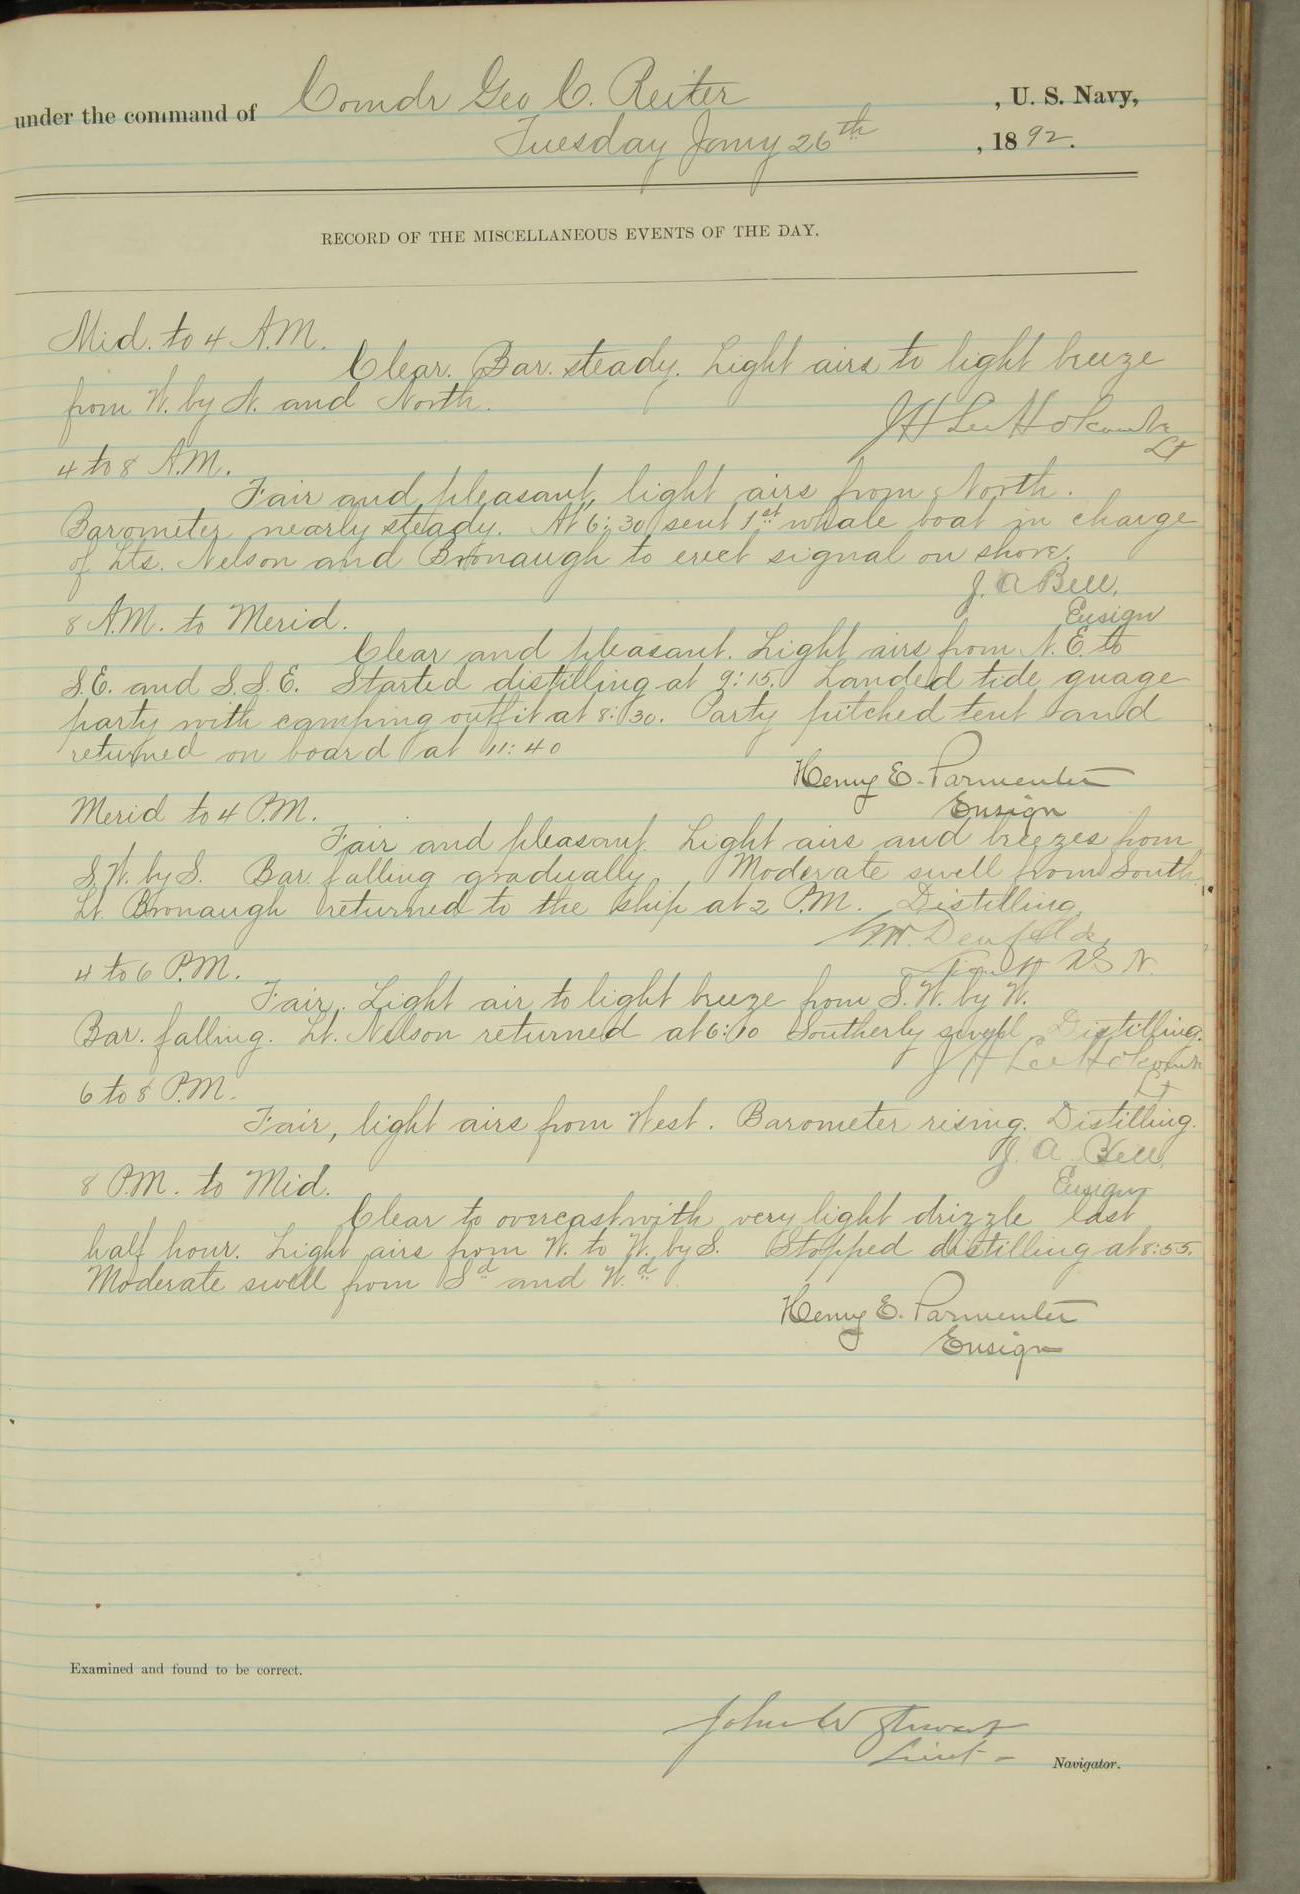 under the command of Comdr Geo C. Reiter , U. S. Navy,
Tuesday Jany 26th , 1892.
RECORD OF THE MISCELLANEOUS EVENTS OF THE DAY.
Mid. to 4 A.M.
Clear. Bar. steady. Light airs to light breeze
from W. by N. and North.
J H Lee Holcombe
Lt
4 to 8 A.M.
Fair and pleasant, light airs from North.
Barometer nearly steady. At 6:30 sent 1st whale boat in charge
of Lts. Nelson and Bronaugh to erect signal on shore.
J. A Bell,
Ensign
8 A.M. to Merid.
Clear and pleasant. Light airs from N.E. to
S.E. and S.S.E. Started distilling at 9:15. Landed tide guage
party with camping outfit at 8:30. Party pitched tent and
returned on board at 11:40
Henry E. Parmenter
Ensign
Merid to 4 P.M.
Fair and pleasant. Light airs and breezes from
S.W. by S. Bar. falling gradually. Moderate swell from South
Lt. Bronaugh returned to the ship at 2 P.M. Distilling
Denfeld
N.
4 to 6 P.M.
Fair. Light air to light breeze from S.W. by W.
Bar. falling. Lt. Nelson returned at 6:10 Southerly swell Distilling.
J H Lee Holcombe
Lt
6 to 8 P.M.
Fair, light airs from West. Barometer rising. Distilling.
J. A. Bell,
Ensign
8 P.M. to Mid.
Clear to overcast with very light drizzle last
half hour. Light airs from W. to W. by S. Stopped distilling at 8:55.
Moderate swell from Sd and Wd.
Henry E. Parmenter
Ensign
Examined and found to be correct.
John W Stewart
Lieut- Navigator.